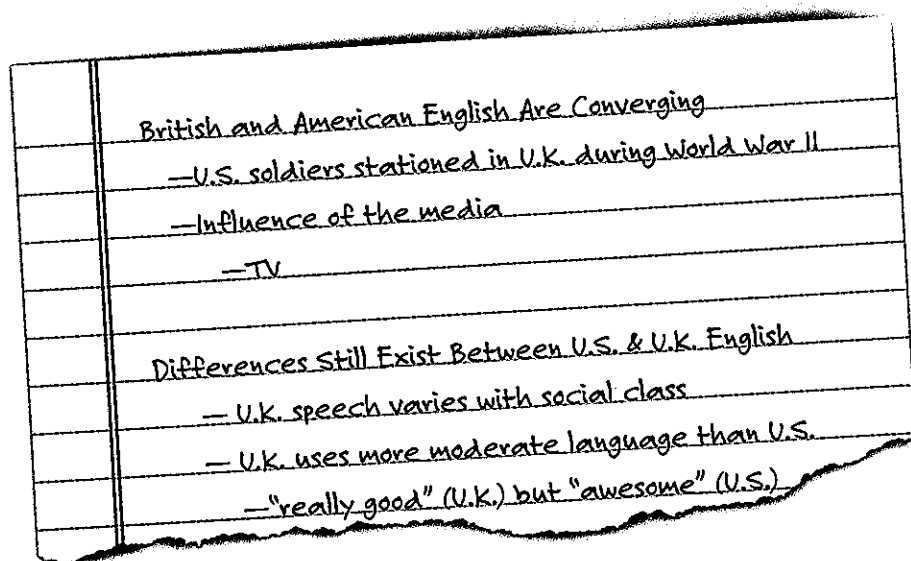 British and American English Are Converging
—U.S. soldiers stationed in U.K. during World War II
—Influence of the media
—TV
Differences Still Exist Between U.S. & U.K. English
— U.K. speech varies with social class
— U.K. uses more moderate language than U.S.
—"really good" (U.K.) but "awesome" (U.S.)